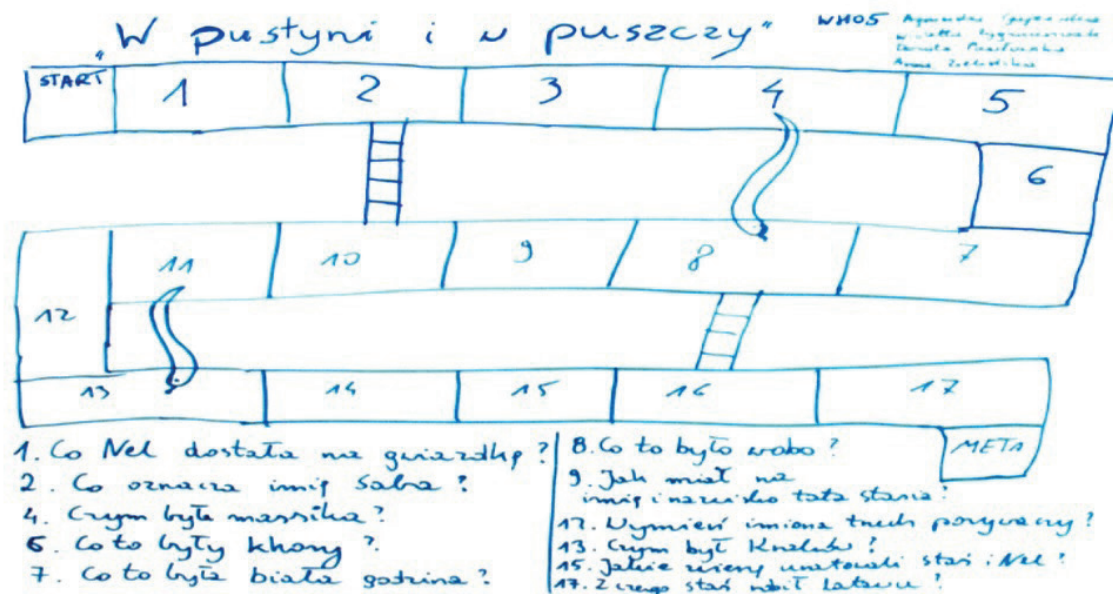 „W pustyni i w puszczy”
WH05
START 1 2 3 4 5
6
11 10 9 8 7
12
13 14 15 16 17
META
1. Co Nel dostała na gwiazdkę?
2. Co oznacza imię Saba?
4. Czym była massika?
6. Co to były khory?
7. Co to była biała godzina?
8. Co to było wobo?
9. Jak miał na
imię i nazwisko tata Stasia?
12. Wymień imiona trzech porywaczy?
13. Czym był
15. Jakie uratowali Staś i Nel?
17. Z czego Staś robił latawce?